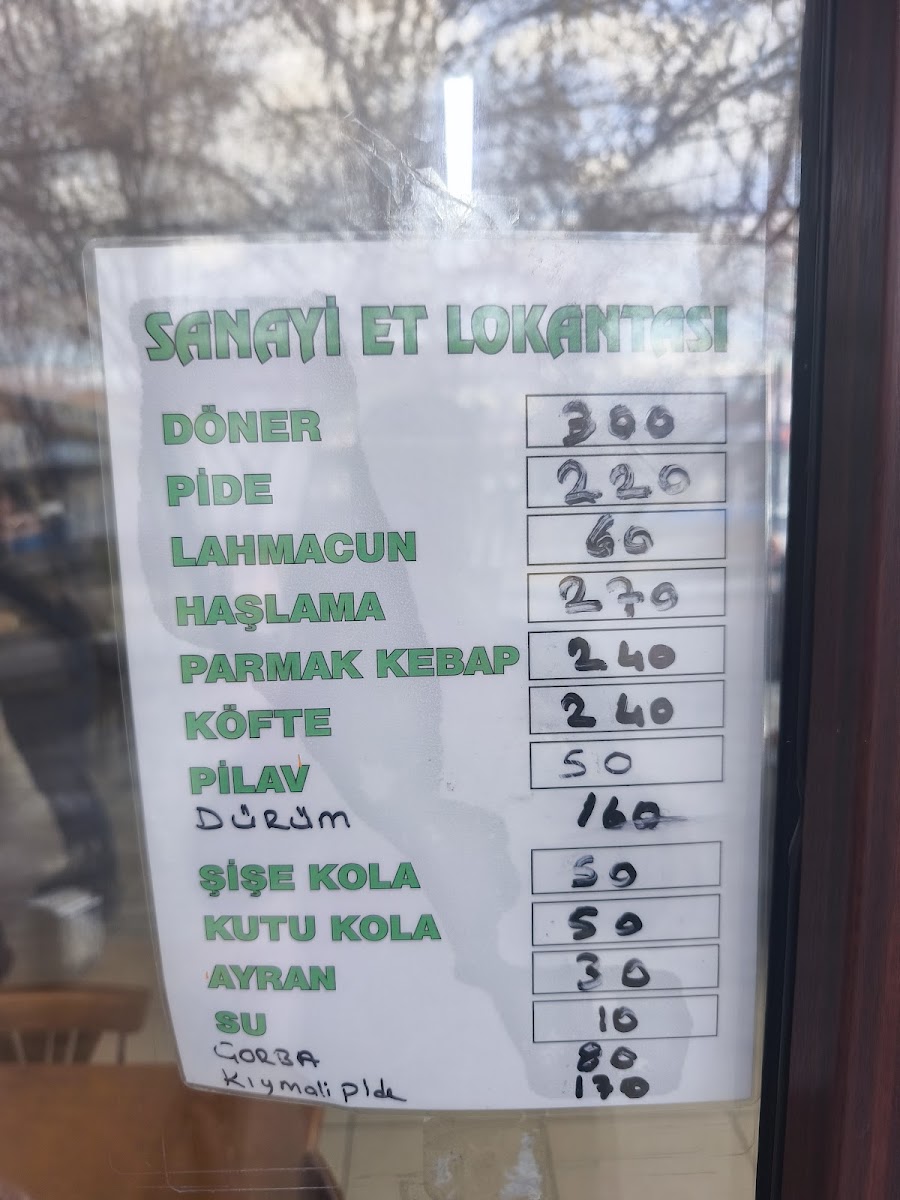 SANAYİ ET LOKANTASI
DÖNER 300
PİDE 220
LAHMACUN 60
HAŞLAMA 270
PARMAK KEBAP 240
KÖFTE 240
PİLAV 50
DÜRÜM 160
ŞİŞE KOLA 50
KUTU KOLA 50
AYRAN 30
SU 10
ÇORBA 80
Kıymali pide 170